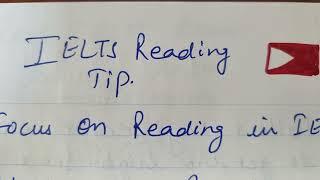 IELTS Reading
Tip.
Focus on Reading in IE